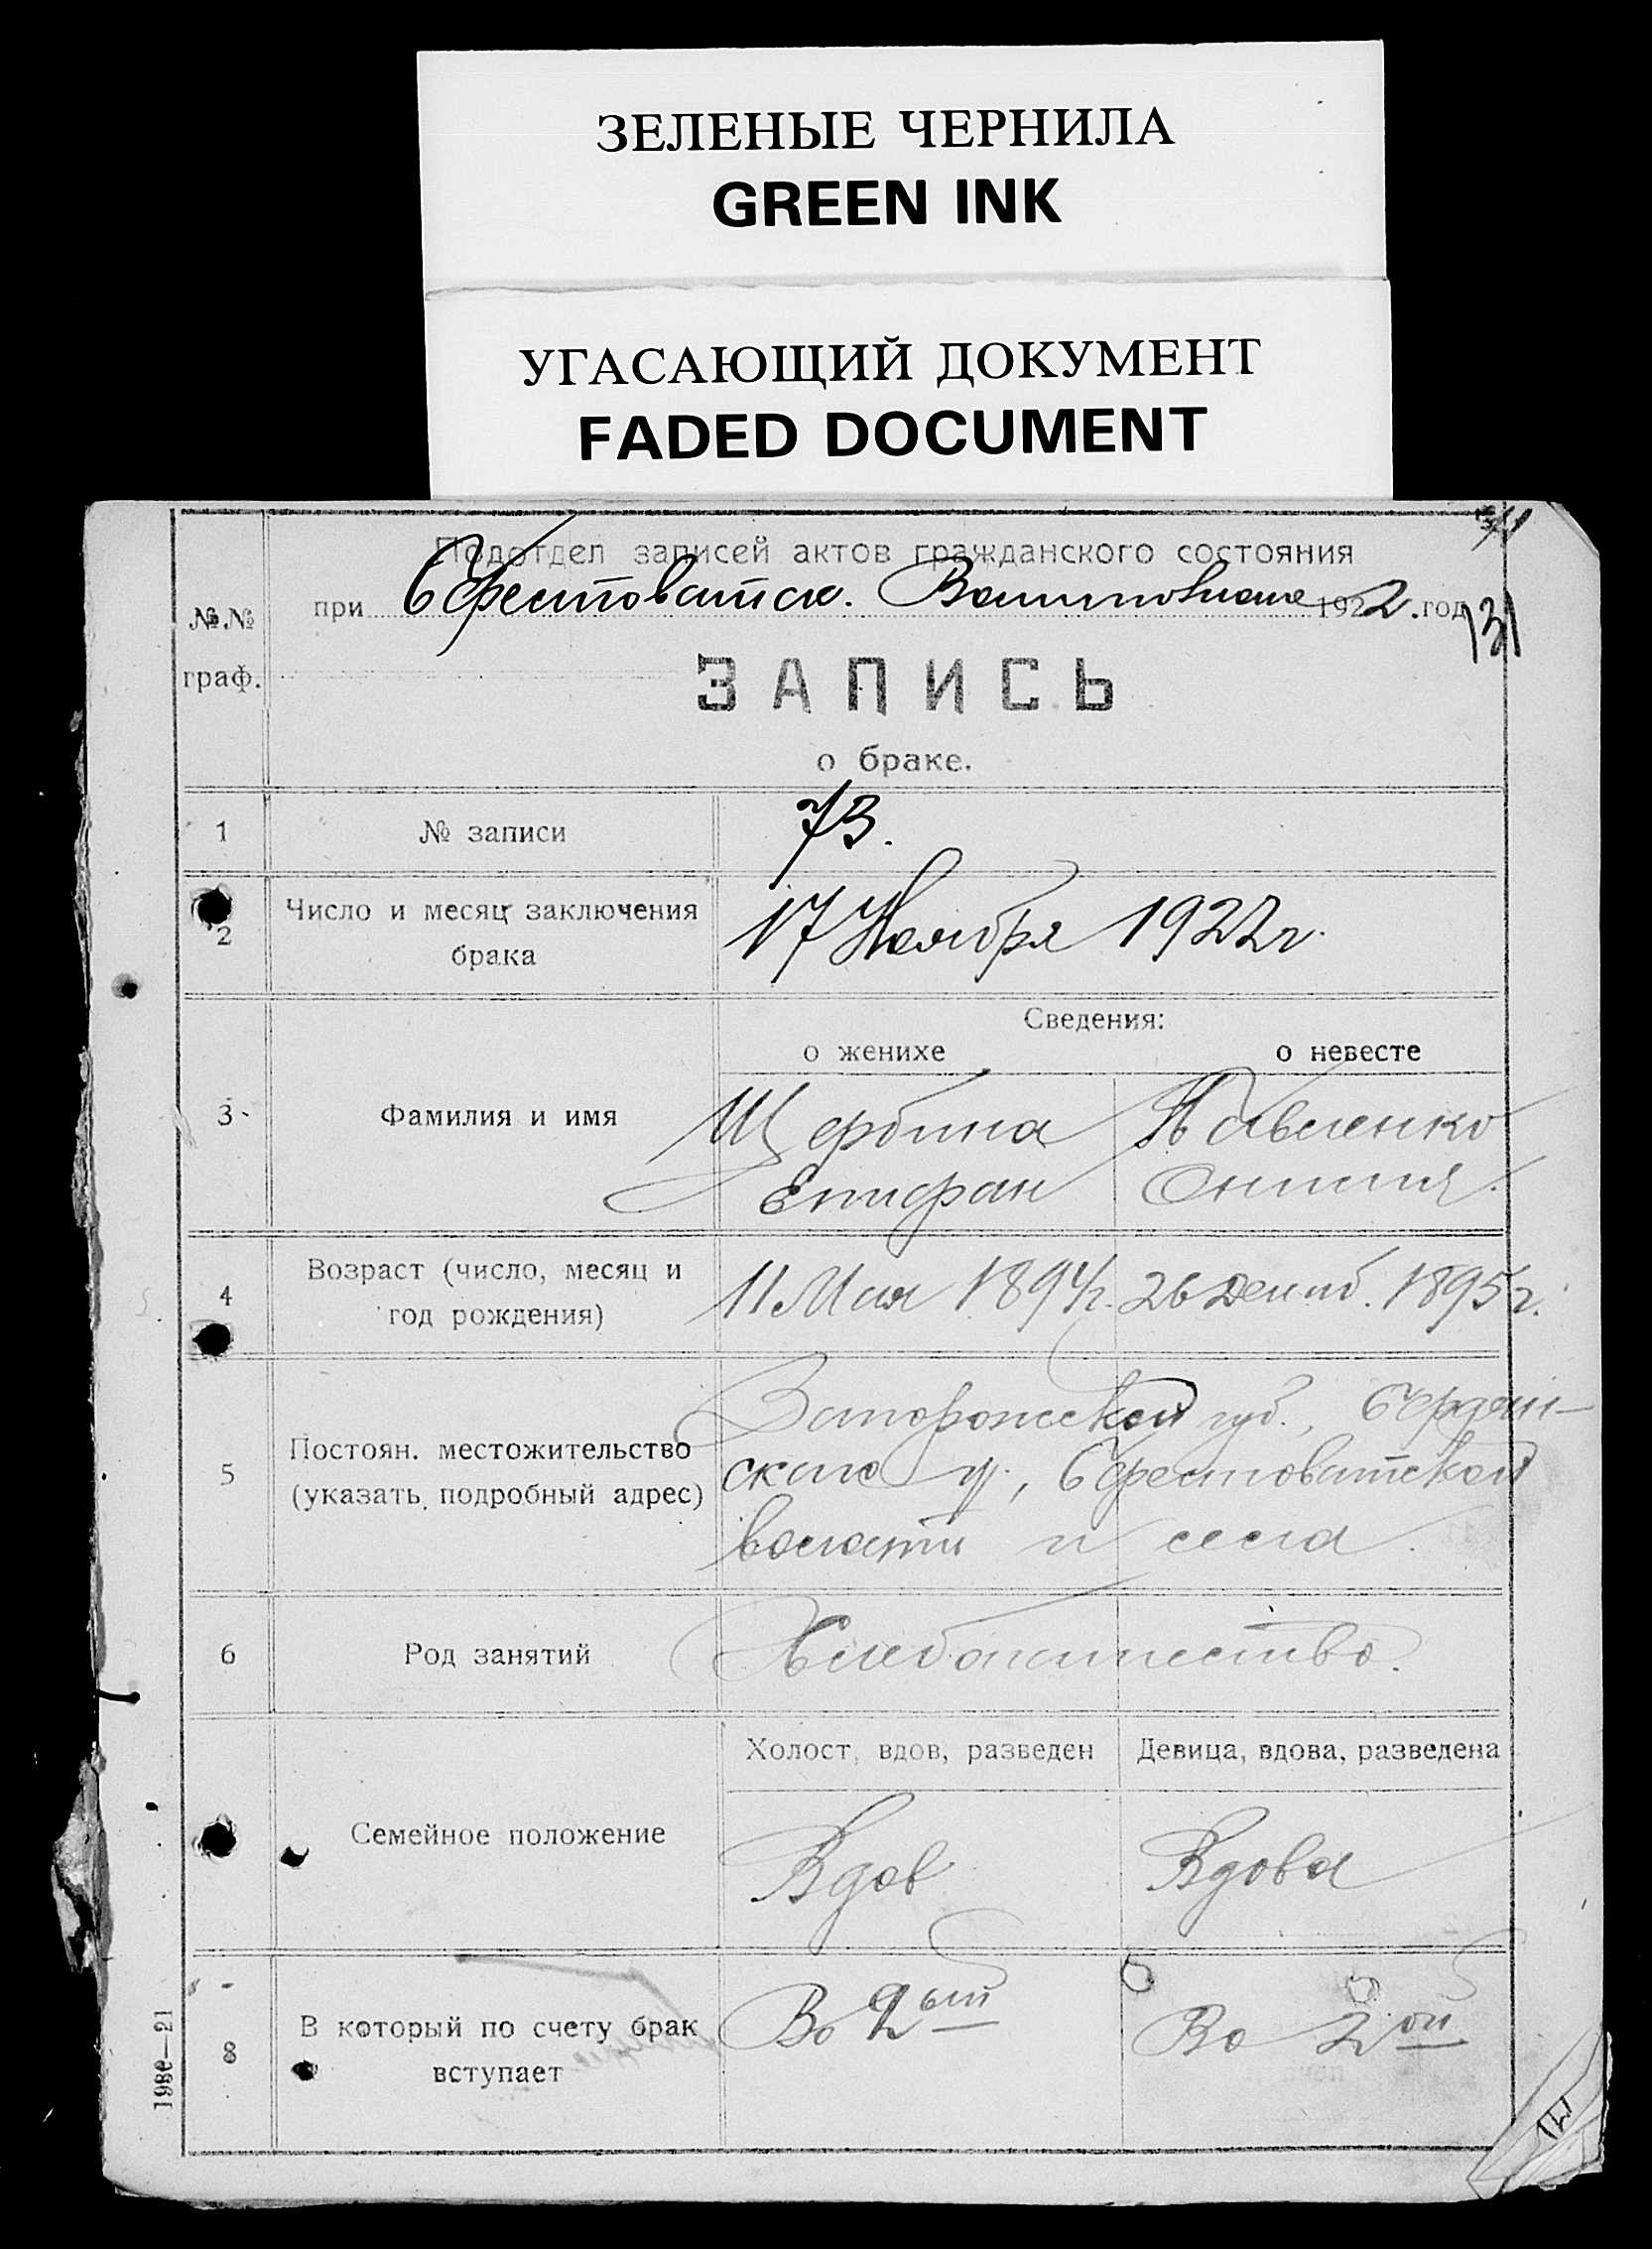 ЗЕЛЕНЫЕ ЧЕРНИЛА
GREEN INK
УГАСАЮЩИЙ ДОКУМЕНТ
FADED DOCUMENT
Подотдел записей актов гражданского состояния
при Берестоватск. 1922. год
131
№№
граф.
ЗАПИСЬ
о браке.
1 № записи 73.
2 Число и месяц заключения
брака
17 Ноября 1922 г.
Сведения:
о женихе о невесте
3 Фамилия и имя
Щербина Павленко
Епифан
4 Возраст (число, месяц и
год рождения)
11 Мая 1894 г. 26 1895 г.
5 Постоян. местожительство
(указать подробный адрес)
Запорожской губ., Бердян-
ского у., Берестоватской
волости и села.
6 Род занятий
Хлебопашество.
Холост, вдов, разведен Девица, вдова, разведена
Семейное положение
Вдов Вдова
8 В который по счету брак
вступает
Во 2ый Во 2ой
198е—21